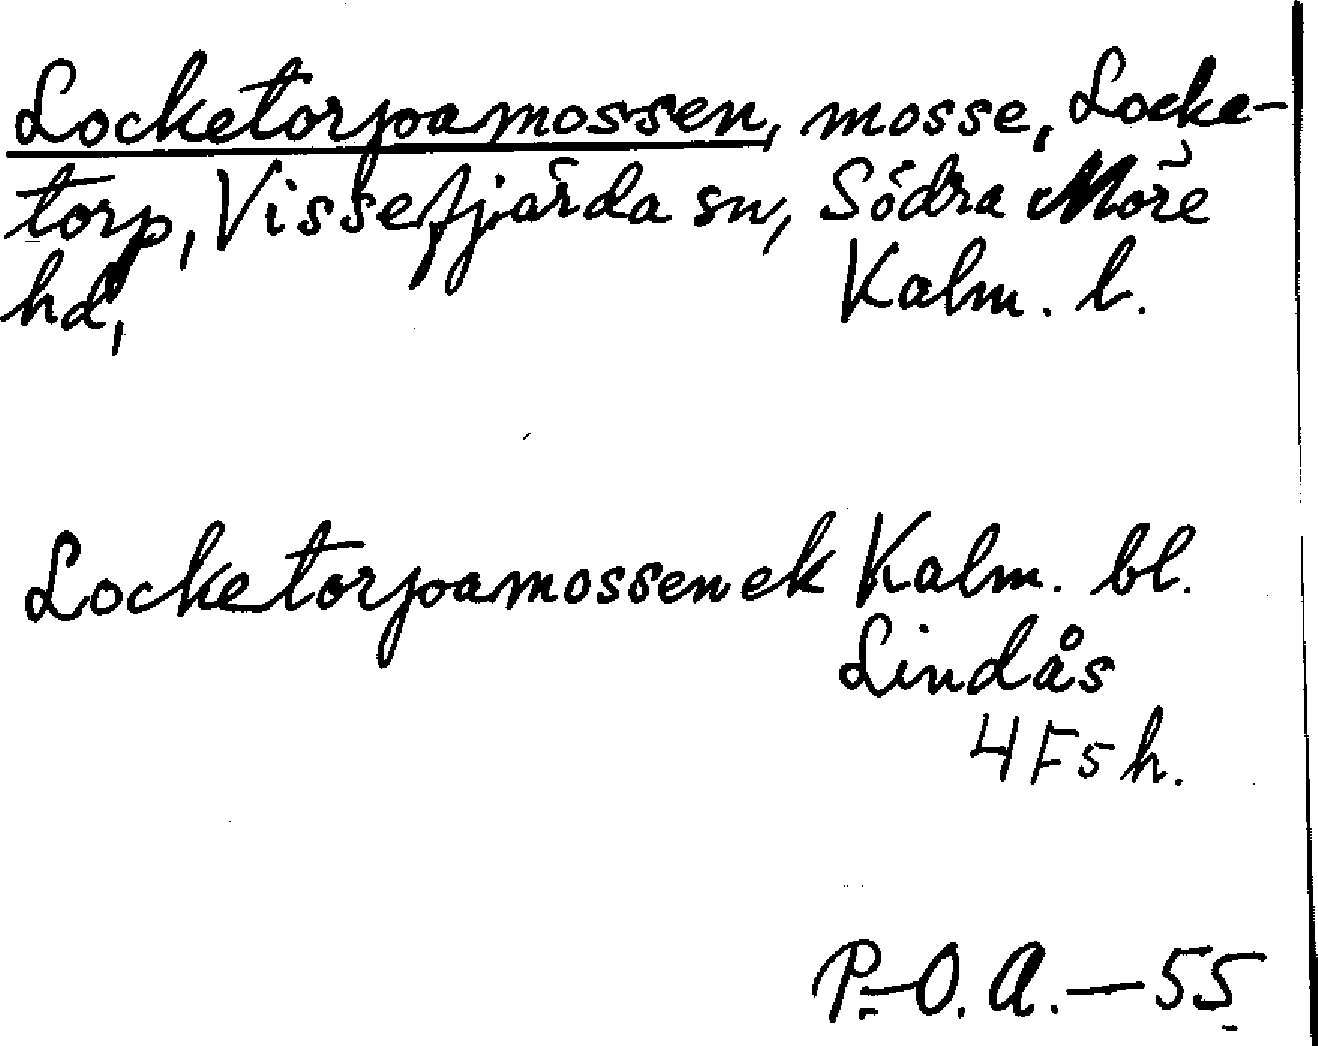 Locketorpamossen, mosse, Locke-
torp, Vissefjärda sn, Södra Möre
hd, Kalm. l.
Locketorpamossen ek Kalm. bl.
Lindås
4F5h.
P.-O. A. - 55